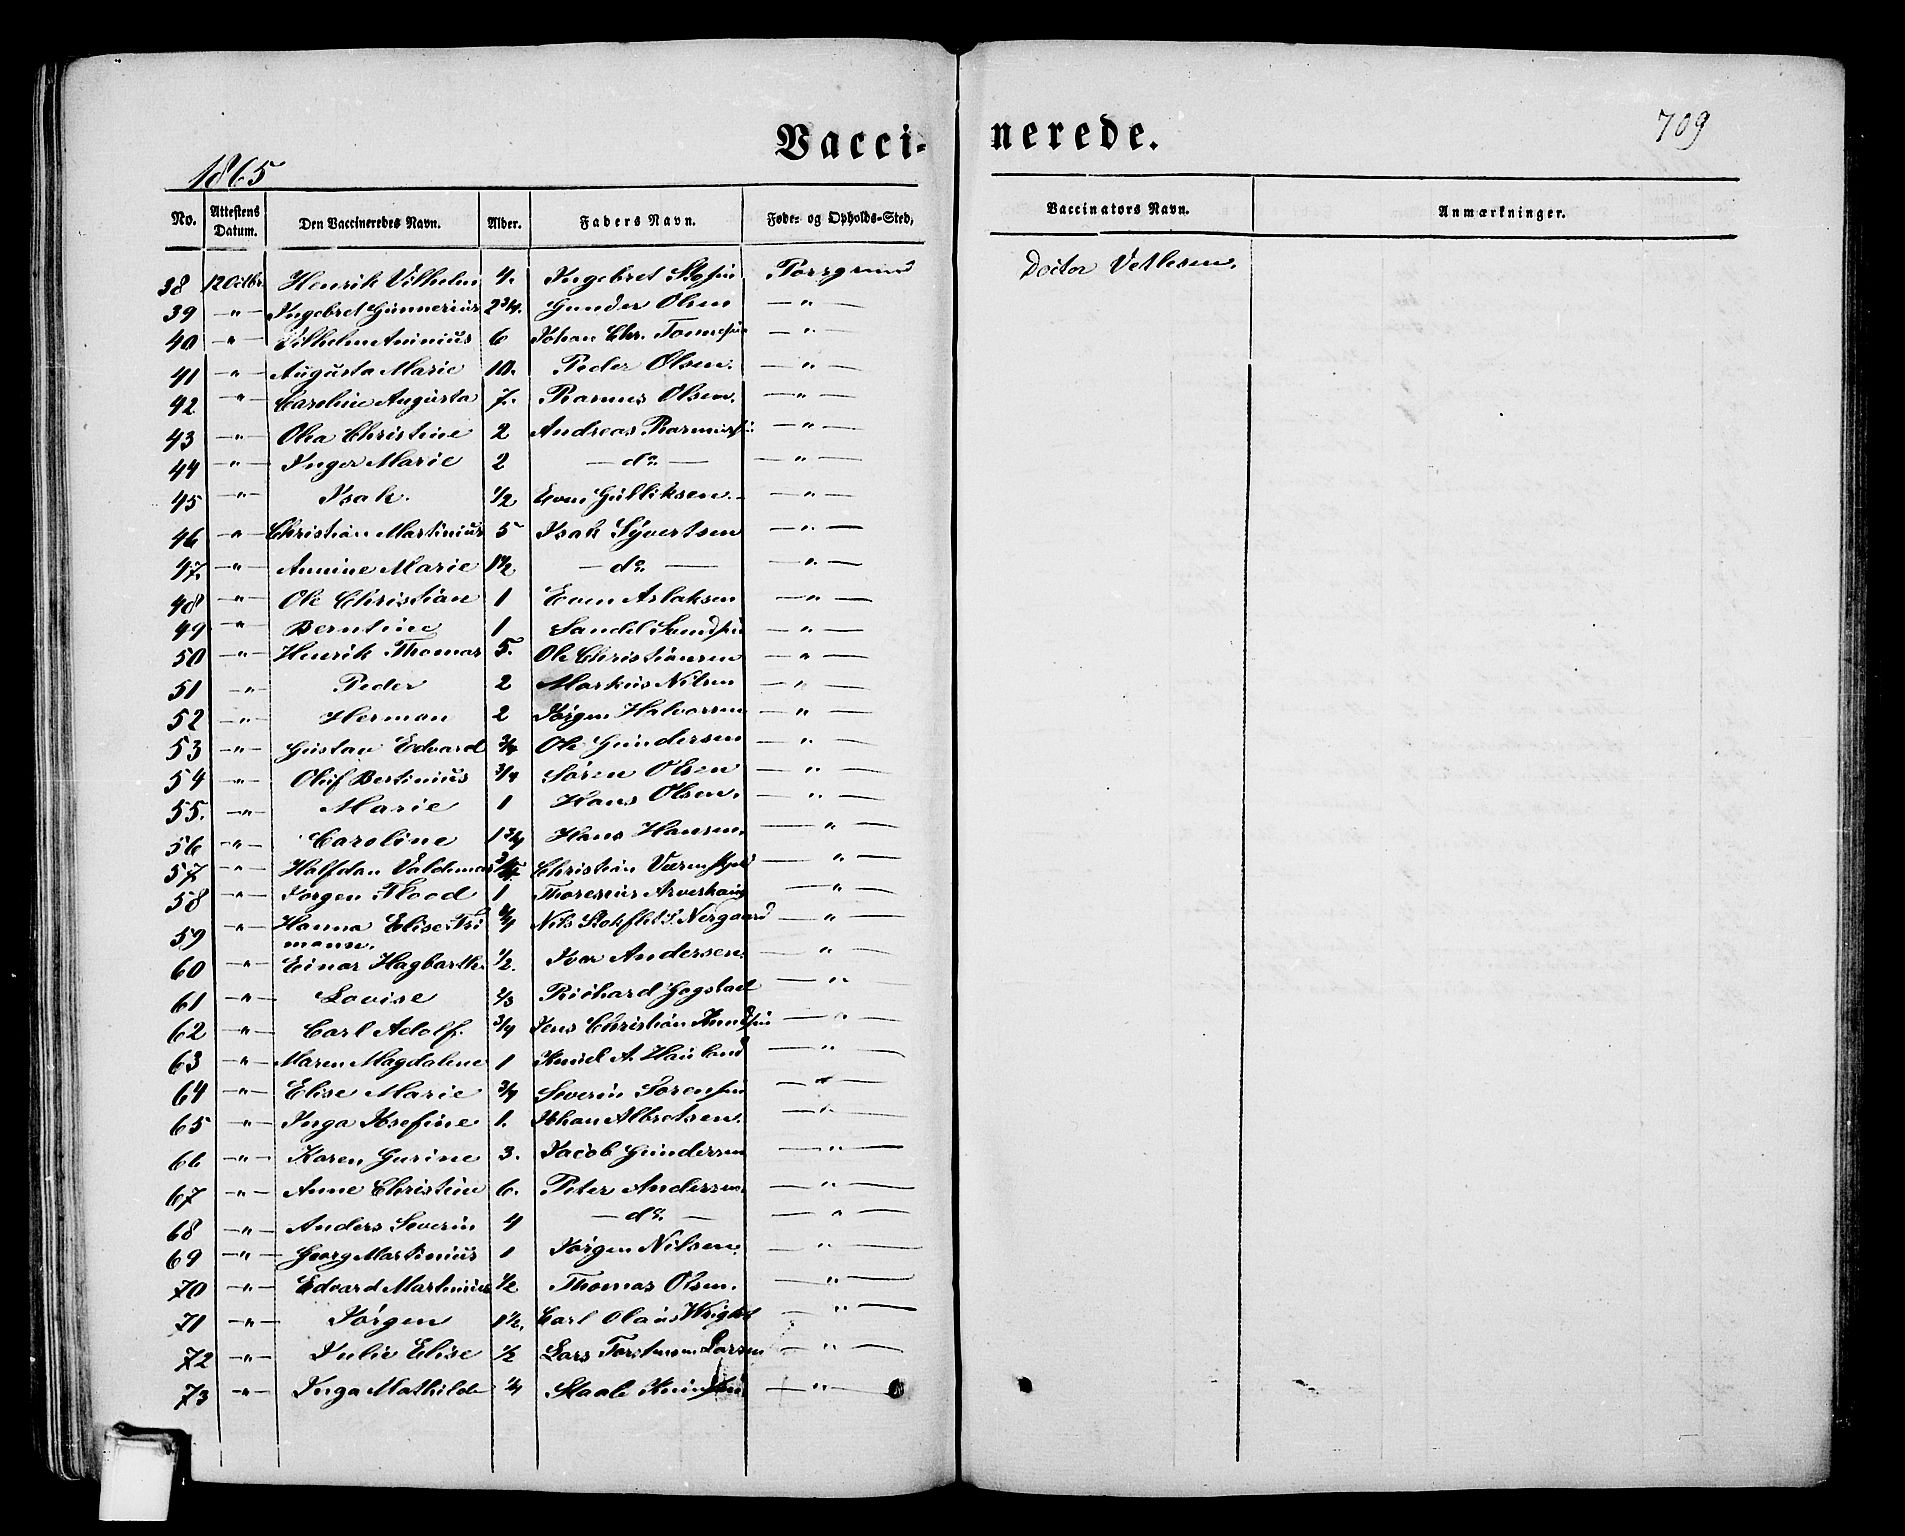 Vacci- nerede.
709
1865
No. Attestens Datum. Den Vaccineredes Navn. Alder. Faders Navn. Føde- og Opholds-Sted, Vaccinators Navn. Anmærkninger.
38 12 Octbr. Henrik Vilhelm 4. Ingebret Porsgrund Doctor Vetlesen.
39 —"— Ingebret Gunnerius 2 3/4. Gunder Olsen —"—
40 " Vilhelm Aninius 6 Johan Chr. —"—
41 —"— Augusta Marie 10. Peder Olsen. —"—
42 —"— Caroline Augusta 7. Rasmus Olsen. —"—
43 —"— Olea Christine 2 Andreas Rasmussen —"—
44 —"— Inger Marie 2 —do.— —"—
45 —"— Isak. 1/2 Even Gulliksen. —"—
46 —"— Christian Martinius 5 Isak Syvertsen —"—
47. —"— Annine Marie 1 1/2 —do.— —"—
48 —"— Ole Christian 1 Even Aslaksen —"—
49 —"— Berntine 1 —"—
50 —"— Henrik Thomas 5. Ole Christiansen —"—
51 —"— Peder 2 Markus Nilsen —"—
52 —"— Herman 2 Jørgen Halvorsen —"—
53 —"— Gustav Edvard 3/4 Ole Gundersen —"—
54 —"— Oluf Bertinius 3/4 Søren Olsen —"—
55. —"— Marie 1 Hans Olsen. —"—
56 —"— Caroline 1 3/4 Hans Hansen. —"—
57 —"— Halfdan Valdemar Christian —"—
58 —"— Jørgen Flood 1 Thoresius —"—
59 —"— Hanna Elise Nils Nergaard —"—
60 —"— Einar Hagbarth. 1/2. Iver Andersen. —"—
61 —"— Lovise 2/3 Richard Gogstad —"—
62 —"— Carl Adolf. 3/4 Jens Christian Knudsen —"—
63 —"— Maren Magdalene 1 Knud A. Hauland —"—
64 —"— Elise Marie 3/4 Severin Sørensen —"—
65 —"— Inga Josefine 1. Johan Albretsen. —"—
66 —"— Karen Gurine 3. Jacob Gundersen —"—
67 —"— Anne Christine 6. Peter Andersen. —"—
68 —"— Anders Severin 4 —do.— —"—
69 —"— Georg Martinius 1 Jørgen Nilsen. —"—
70 —"— Edvard Martinius 1/2 Thomas Olsen. —"—
71 —"— Jørgen 1 1/2. Carl Olaus Wright —"—
72 —"— Julie Elise 1/2 Lars Larsen —"—
73 —"— Inga Mathilde 1/4 Knudsen —"—